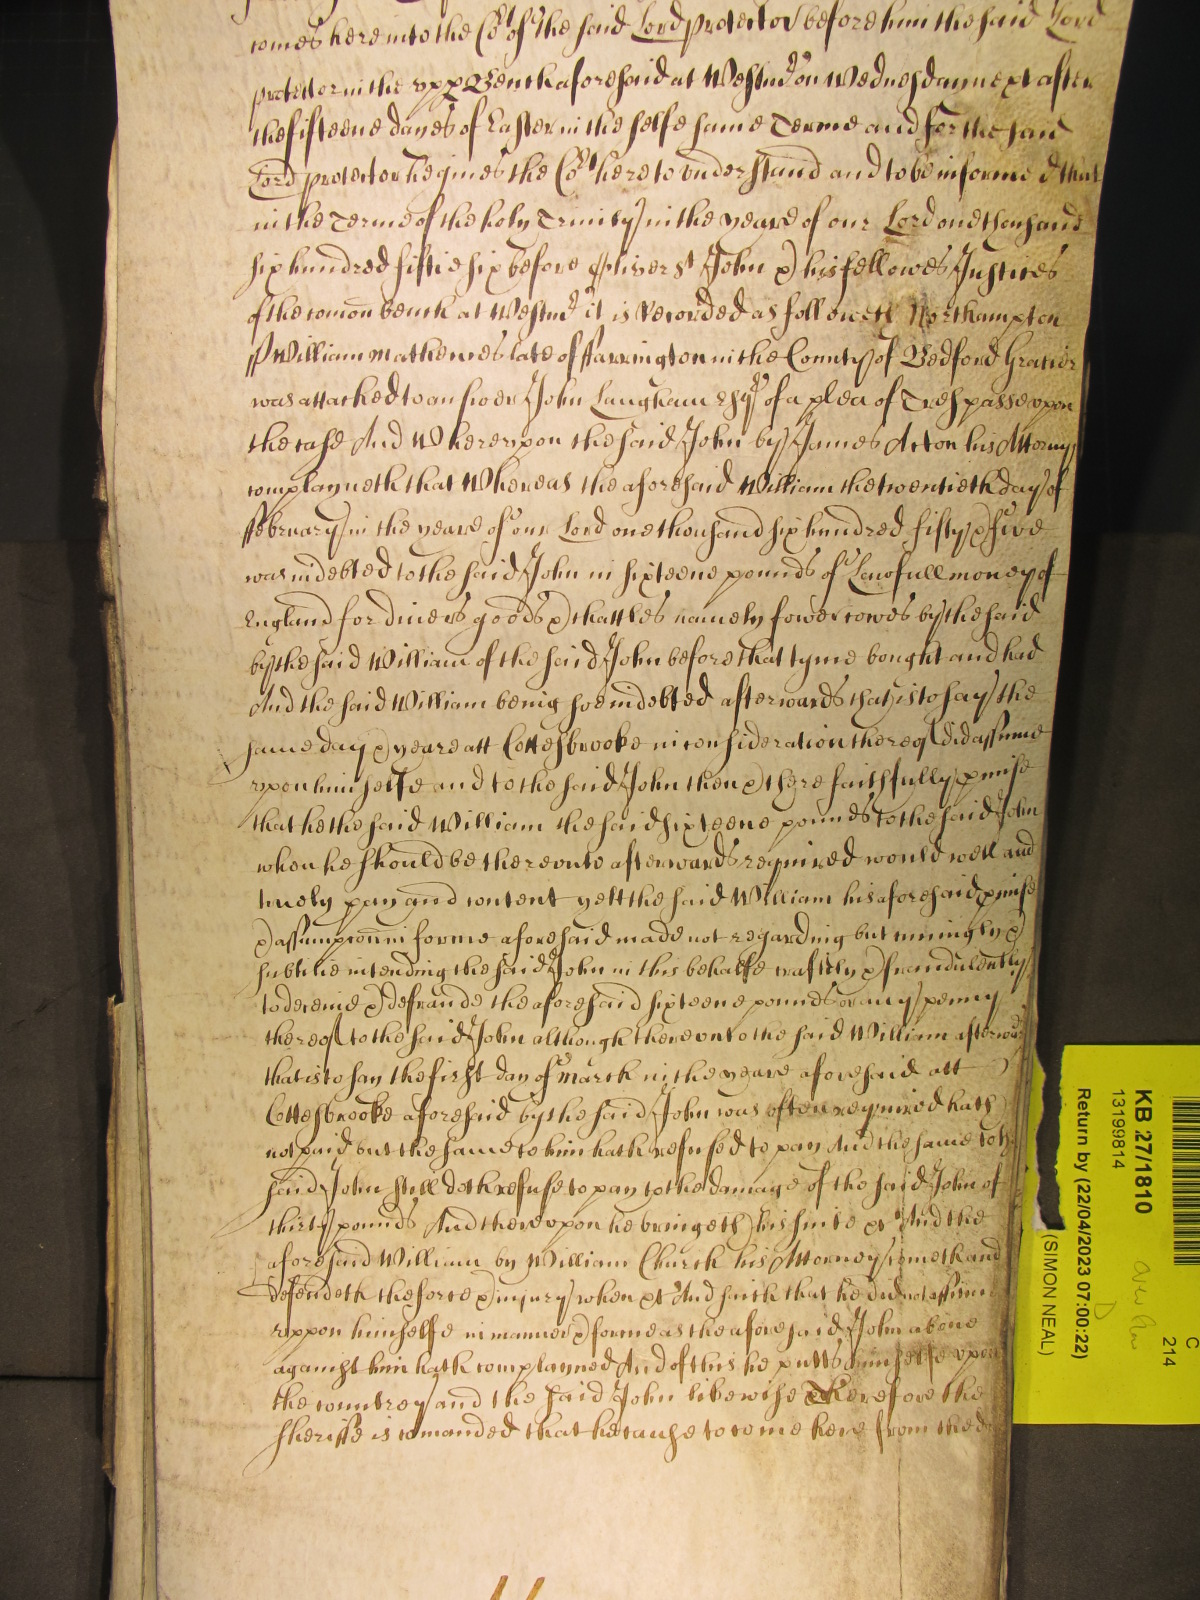 comes here into the Co:rt of the said Lord protector before him the said Lord
protector in the vpp Bench aforesaid at Westmr on Wednesday next after
the fifteene dayes of Easter in the selfe same Terme and for the said
Lord protector he gives the Co:rt here to understand and to be informed that
in the Terme of the holy Trinity in the yeare of our Lord one thousand
six hundred fiftie six before Oliver St John & his fellowes Justices
of the comon bench at Westmr it is Recorded as followeth Northampton
ss William Mathewes late of ffarrington in the County of Bedford Grasier
was attached to answer John Langham Esqr of a plea of Trespasse vpon
the case And Whereupon the said John by James Acton his Attorny
complayneth that Whereas the aforesaid William the twentieth day of
ffebruary in the yeare of our Lord one thousand six hundred fifty & five
was indebted to the said John in sixteene pounds of Lawfull money of
England for divers goods & chattles namely fower cowes by the said
by the said William of the said John before that tyme bought and had
And the said William being soe indebted afterwards that is to say the
same day & yeare att Cottesbrooke in consideration thereof did assume
vpon himselfe and to the said John then & there faithfully pmise
that he the said William the said sixteene pounds to the said John
when he should be therevnto afterwards required would well and
truely pay and content yett the said William his aforesaid pmise
& assumpcon in forme aforesaid made not regarding but cuningly &
subtilie intending the said John in this behalfe craftily & fraudulently
to deceive & defraude the aforesaid sixteene pounds or any penny
thereof to the said John although therevnto the said William afterwards
that is to say the first day of March in the yeare aforesaid att
Cottesbrooke aforesaid by the said John was often required hath
not paid but the same to him hath refused to pay And the same to the
said John still doth refuse to pay to the damage of the said John of
thirty pounds And therevpon he bringeth his suite &c And the
aforesaid William by William Church his Attorney cometh and
defendeth the force & injury when &c And saith that he did not assume
vppon himselfe in manner & forme as the aforesaid John above
against him hath complayned And of this he putts himselfe vpon
the countrey and the said John likewise Therefore the
sheriffe is comanded that he cause to come here from the
C
214
KB 27/1810
13199814
Return by (22/04/2023 07:00:22)
(SIMON NEAL)